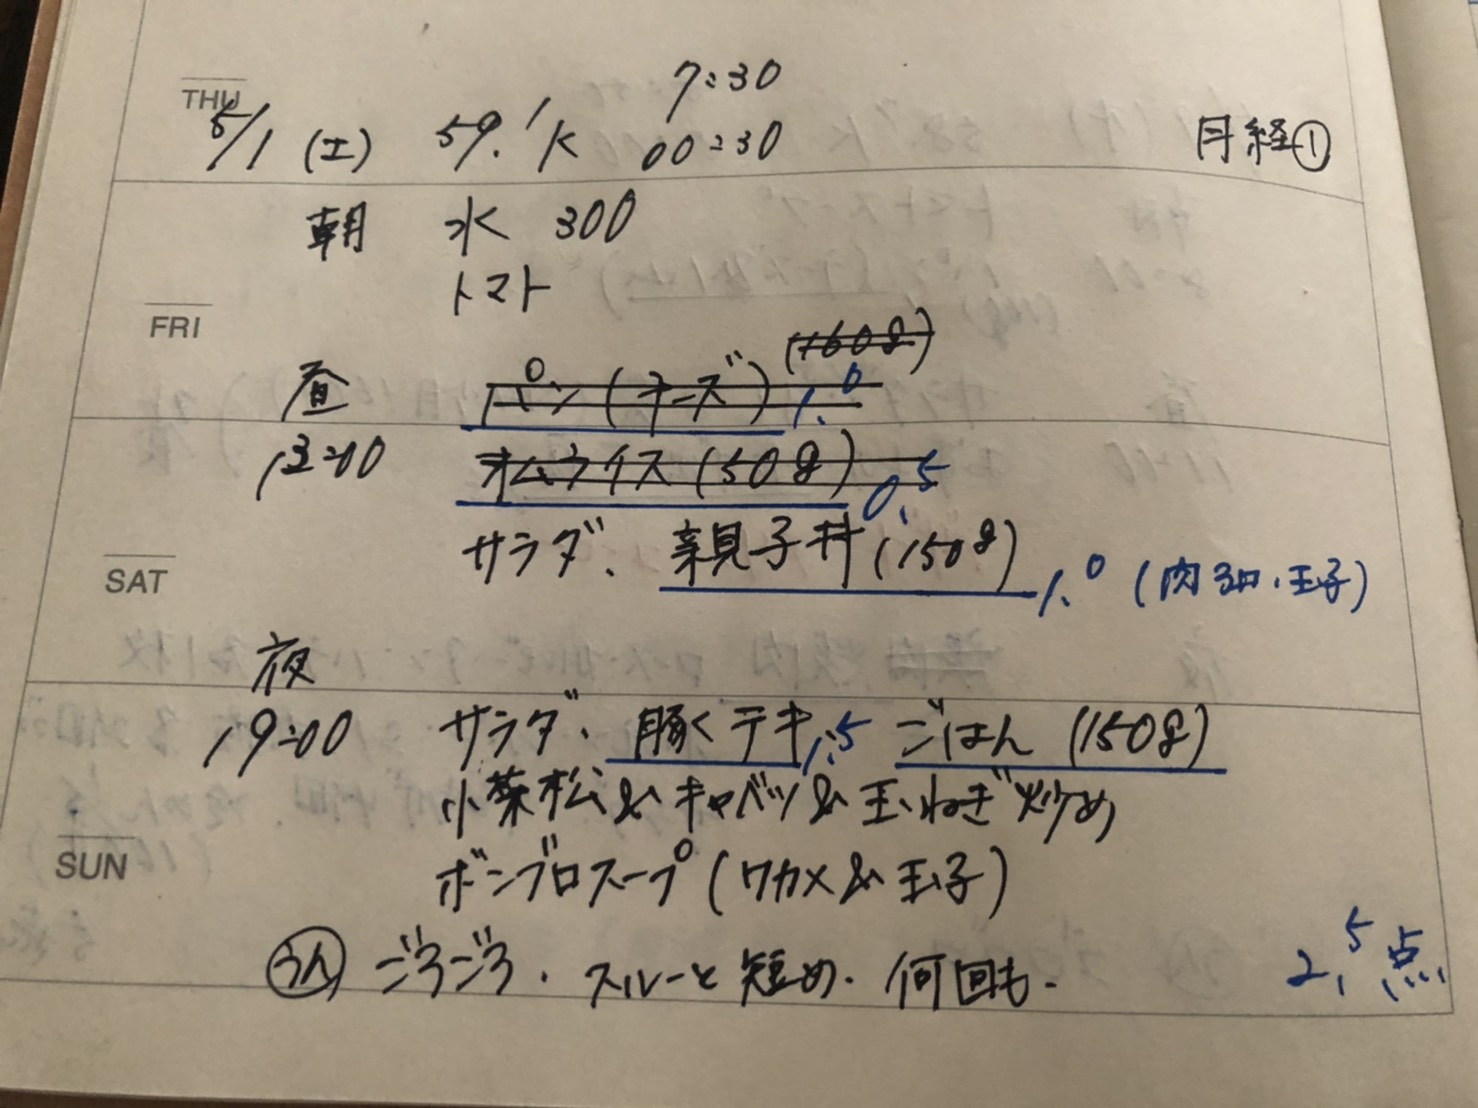 7:30
THU
5/1 (土) 59.1K 00:30 月経①
朝 水 300
トマト
FRI
(160g)
昼 パン (チーズ) 1.0
13:00 オムライス (50g) 0.5
サラダ、親子丼 (150g) 1.0 (肉 3口、玉子)
SAT
夜
19:00 サラダ、豚くテキ 1.5 ごはん (150g)
小葉松&キャベツ&玉ねぎ炒め
SUN
ボンブロスープ (ワカメ&玉子)
うん ごろごろ. スルーと短め. 何回も.
2.5点